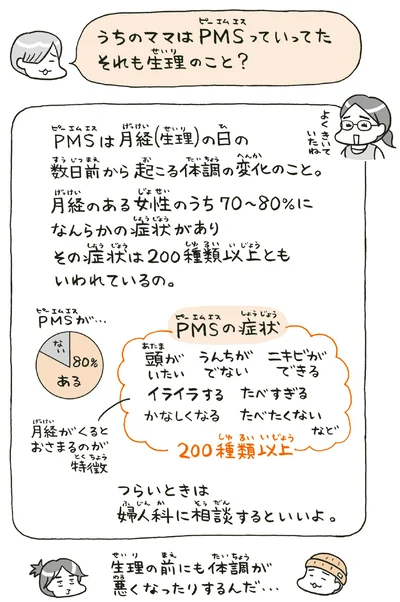 うちのママはPMSっていってた
それも生理のこと？
よくきいて
いたね
PMSは月経(生理)の日の
数日前から起こる体調の変化のこと。
月経のある女性のうち70～80%に
なんらかの症状があり
その症状は200種類以上とも
いわれているの。
PMSが…
ない
80%
ある
月経がくると
おさまるのが
特徴
PMSの症状
頭が
いたい
うんちが
でない
ニキビが
できる
イライラする たべすぎる
かなしくなる たべたくない
など
200種類以上
つらいときは
婦人科に相談するといいよ。
生理の前にも体調が
悪くなったりするんだ…